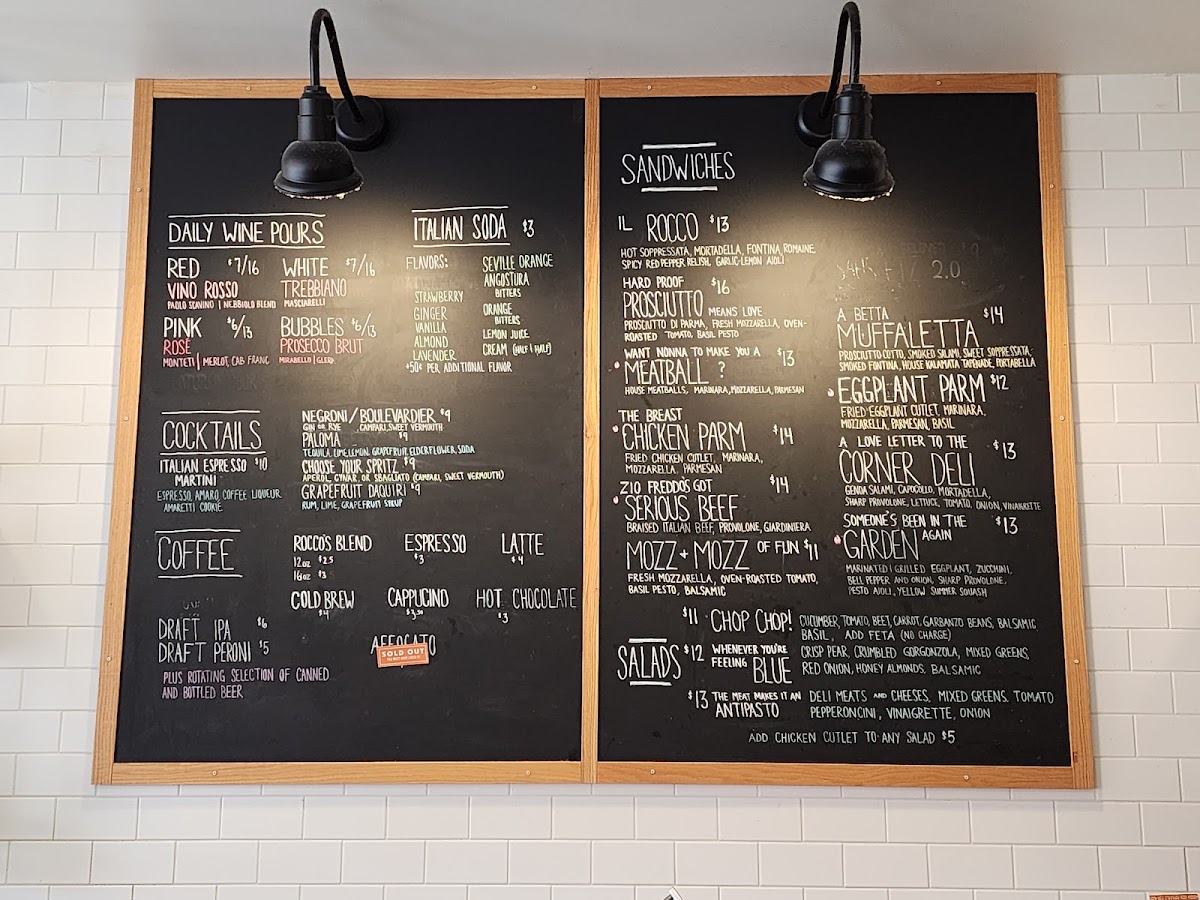 DAILY WINE POURS
RED $7/16
VINO ROSSO
PAOLO SCAVINO | NEBBIOLO BLEND
WHITE $7/16
TREBBIANO
MASCIARELLI
PINK $6/13
ROSÉ
MONTETI | MERLOT, CAB FRANC
BUBBLES $6/13
PROSECCO BRUT
MIRABELLO | GLERA
ITALIAN SODA $3
FLAVORS:
STRAWBERRY
GINGER
VANILLA
ALMOND
LAVENDER
SEVILLE ORANGE
ANGOSTURA
BITTERS
ORANGE
BITTERS
LEMON JUICE
CREAM (HALF | HALF)
+50¢ PER ADDITIONAL FLAVOR
COCKTAILS
ITALIAN ESPRESSO $10
MARTINI
ESPRESSO, AMARO, COFFEE LIQUEUR
AMARETTI COOKIE
NEGRONI/BOULEVARDIER $9
GIN OR RYE, CAMPARI, SWEET VERMOUTH
PALOMA $9
TEQUILA, LIME, LEMON, GRAPEFRUIT, ELDERFLOWER, SODA
CHOOSE YOUR SPRITZ $9
APEROL, CYNAR, OR SBAGLIATO (CAMPARI, SWEET VERMOUTH)
GRAPEFRUIT DAQUIRI $9
RUM, LIME, GRAPEFRUIT SYRUP
COFFEE
ROCCO'S BLEND
12oz $2.5
16oz $3
ESPRESSO
$3
LATTE
$4
COLD BREW
$4
CAPPUCINO
$3.50
HOT CHOCOLATE
$3
AFFOGATO
SOLD OUT
DRAFT IPA $6
DRAFT PERONI $5
PLUS ROTATING SELECTION OF CANNED
AND BOTTLED BEER
SANDWICHES
IL ROCCO $13
HOT SOPPRESSATA, MORTADELLA, FONTINA, ROMAINE
SPICY RED PEPPER RELISH, GARLIC-LEMON AIOLI
HARD PROOF $16
PROSCIUTTO MEANS LOVE
PROSCIUTTO DI PARMA, FRESH MOZZARELLA, OVEN-
ROASTED TOMATO, BASIL PESTO
WANT NONNA TO MAKE YOU A $13
MEATBALL ?
HOUSE MEATBALLS, MARINARA, MOZZARELLA, PARMESAN
THE BREAST
CHICKEN PARM $14
FRIED CHICKEN CUTLET, MARINARA,
MOZZARELLA, PARMESAN
ZIO FREDDO'S GOT $14
SERIOUS BEEF
BRAISED ITALIAN BEEF, PROVOLONE, GIARDINIERA
MOZZ + MOZZ OF FUN $11
FRESH MOZZARELLA, OVEN-ROASTED TOMATO,
BASIL PESTO, BALSAMIC
2.0
A BETTA $14
MUFFALETTA
PROSCIUTTO COTTO, SMOKED SALAMI, SWEET SOPPRESSATA,
SMOKED FONTINA, HOUSE KALAMATA TAPENADE, PORTABELLA
EGGPLANT PARM $12
FRIED EGGPLANT CUTLET, MARINARA,
MOZZARELLA, PARMESAN, BASIL
A LOVE LETTER TO THE $13
CORNER DELI
GENOA SALAMI, CAPOCOLLO, MORTADELLA,
SHARP PROVOLONE, LETTUCE, TOMATO, ONION, VINAIGRETTE
SOMEONE'S BEEN IN THE $13
GARDEN AGAIN
MARINATED | GRILLED EGGPLANT, ZUCCHINI,
BELL PEPPER AND ONION, SHARP PROVOLONE,
PESTO AIOLI, YELLOW SUMMER SQUASH
SALADS
$11 CHOP CHOP! CUCUMBER, TOMATO, BEET, CARROT, GARBANZO BEANS, BALSAMIC
BASIL, ADD FETA (NO CHARGE)
$12 WHENEVER YOU'RE FEELING BLUE CRISP PEAR, CRUMBLED GORGONZOLA, MIXED GREENS,
RED ONION, HONEY ALMONDS, BALSAMIC
$13 THE MEAT MAKES IT AN ANTIPASTO DELI MEATS AND CHEESES, MIXED GREENS, TOMATO
PEPPERONCINI, VINAIGRETTE, ONION
ADD CHICKEN CUTLET TO ANY SALAD $5